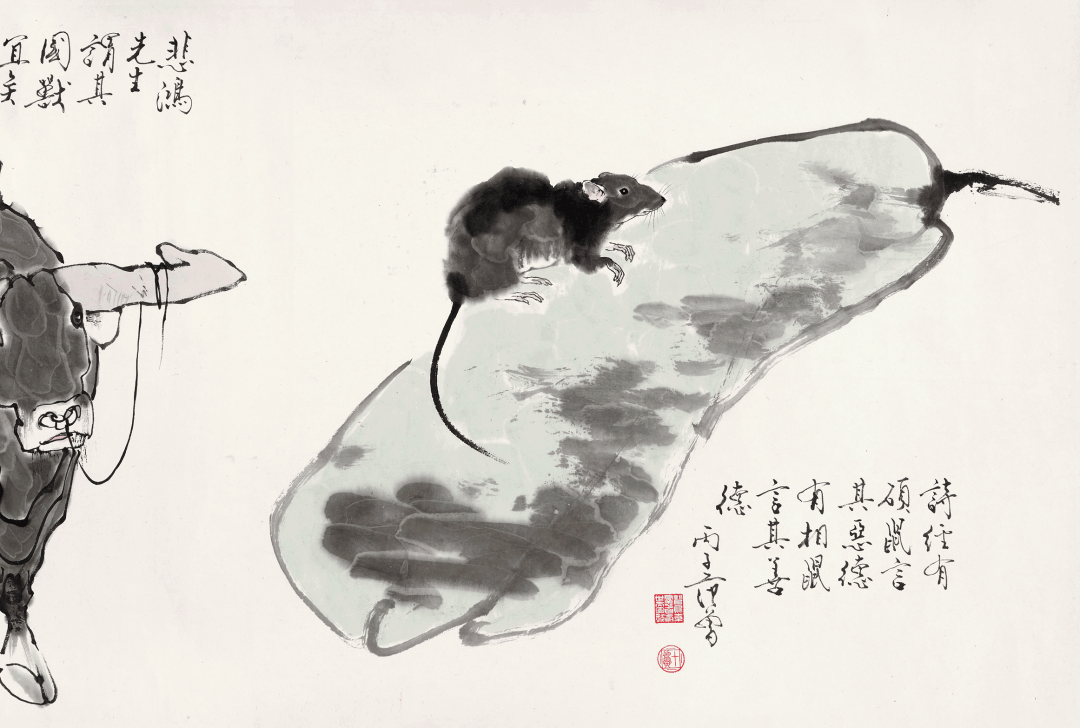 詩經有
碩鼠言
其惡德
有相鼠
言其善
德
丙子范曾
悲鴻
先生
謂其
國獸
宜矣